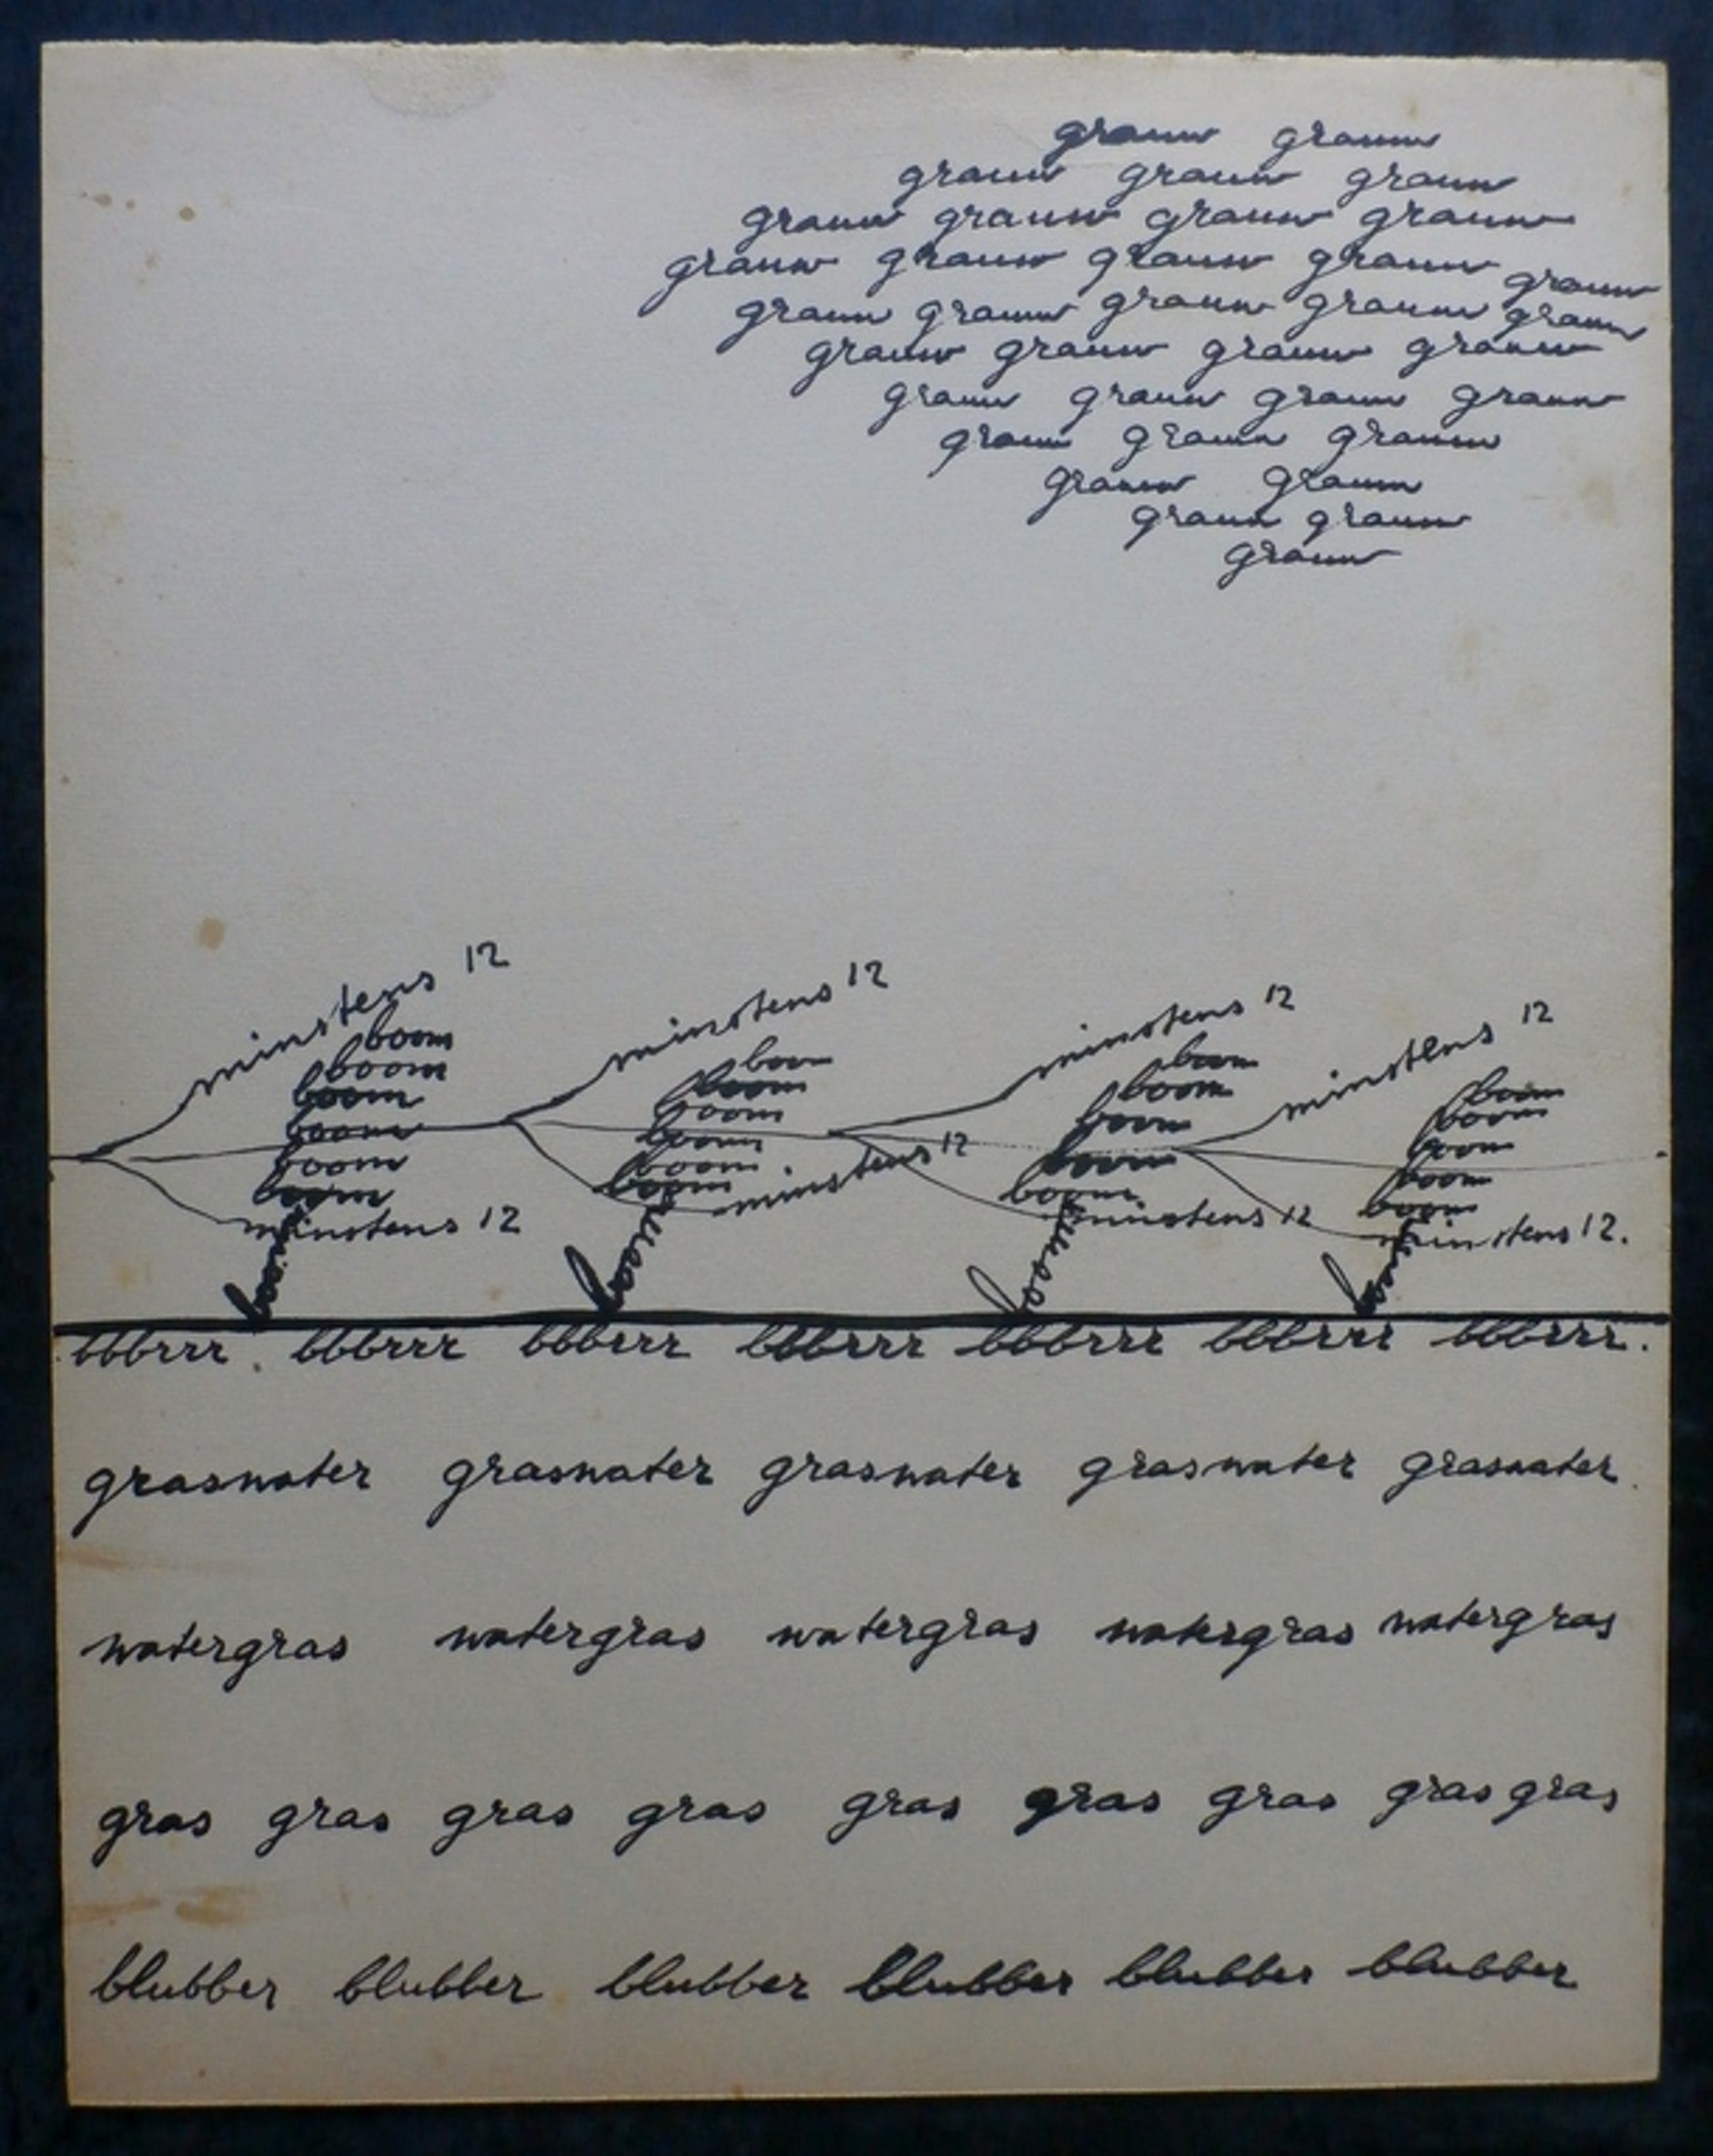 grauw grauw
grauw grauw grauw
grauw grauw grauw grauw
grauw grauw grauw grauw grauw
grauw grauw grauw grauw grauw
grauw grauw grauw grauw
grauw grauw grauw grauw
grauw grauw grauw
grauw grauw
grauw grauw
grauw
minstens 12
boom
boom
boom
boom
boom
boom
minstens 12
minstens 12
boom
boom
boom
boom
boom
boom
minstens 12
minstens 12
boom
boom
boom
boom
boom
minstens 12
minstens 12
boom
boom
boom
boom
boom
minstens 12.
bbbrrr. bbbrrr bbbrrr bbbrrr bbbrrr bbbrrr bbbrrr.
graswater graswater graswater graswater graswater.
watergras watergras watergras watergras watergras
gras gras gras gras gras gras gras gras gras
blubber blubber blubber blubber blubber blubber